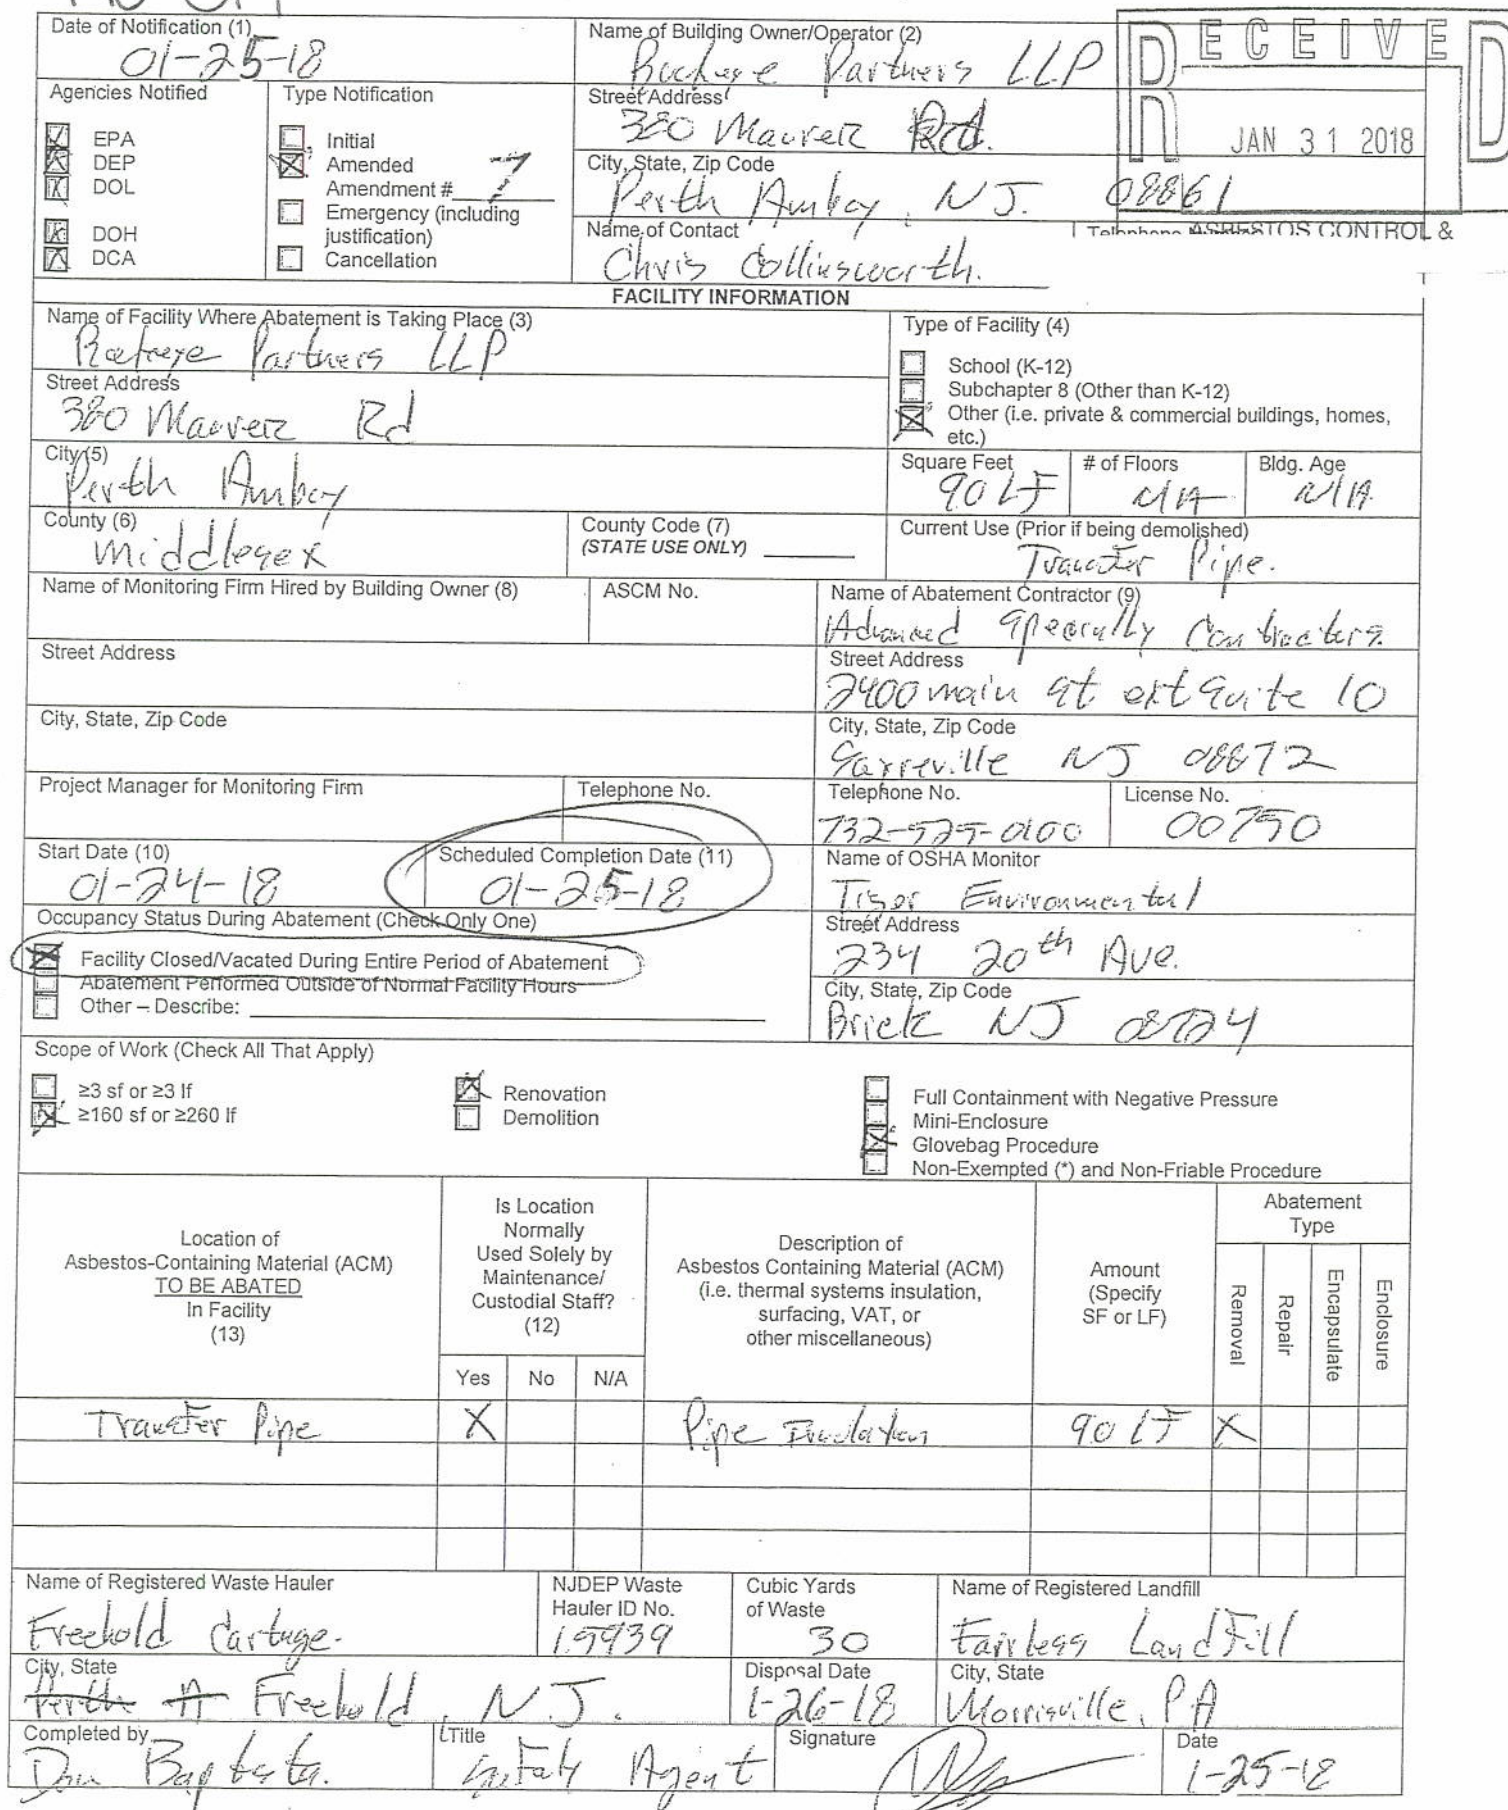 Date of Notification (1)
01-25-18
Name of Building Owner/Operator (2)
Buckeye Partners LLP
RECEIVED
JAN 31 2018
ASBESTOS CONTROL &
Agencies Notified
EPA
DEP
DOL
DOH
DCA
Type Notification
Initial
Amended
Amendment #
Emergency (including justification)
Cancellation
Street Address
380 Maurer Rd.
City, State, Zip Code
Perth Amboy, NJ. 08861
Name of Contact
Chris Collinsworth.
FACILITY INFORMATION
Name of Facility Where Abatement is Taking Place (3)
Partners LLP
Street Address
380 Maurer Rd
City (5)
Perth Amboy
County (6)
Middlesex
County Code (7)
(STATE USE ONLY)
Type of Facility (4)
School (K-12)
Subchapter 8 (Other than K-12)
Other (i.e. private & commercial buildings, homes, etc.)
Square Feet
90 LF
# of Floors
N/A
Bldg. Age
N/A
Current Use (Prior if being demolished)
Transfer Pipe.
Name of Monitoring Firm Hired by Building Owner (8)
ASCM No.
Name of Abatement Contractor (9)
Advanced Specialty Contractors.
Street Address
Street Address
2400 main st ext Suite 10
City, State, Zip Code
City, State, Zip Code
Sayreville NJ 08872
Project Manager for Monitoring Firm
Telephone No.
Telephone No.
License No.
00750
Start Date (10)
01-24-18
Scheduled Completion Date (11)
01-25-18
Name of OSHA Monitor
Environmental
Occupancy Status During Abatement (Check Only One)
Facility Closed/Vacated During Entire Period of Abatement
Abatement Performed Outside of Normal Facility Hours
Other – Describe:
Street Address
234 20th Ave.
City, State, Zip Code
Brick NJ 08724
Scope of Work (Check All That Apply)
≥3 sf or ≥3 lf
≥160 sf or ≥260 lf
Renovation
Demolition
Full Containment with Negative Pressure
Mini-Enclosure
Glovebag Procedure
Non-Exempted (*) and Non-Friable Procedure
Location of
Asbestos-Containing Material (ACM)
TO BE ABATED
In Facility
(13)
Is Location
Normally
Used Solely by
Maintenance/
Custodial Staff?
(12)
Yes No N/A
Description of
Asbestos Containing Material (ACM)
(i.e. thermal systems insulation,
surfacing, VAT, or
other miscellaneous)
Amount
(Specify
SF or LF)
Abatement
Type
Removal
Repair
Encapsulate
Enclosure
Transfer Pipe X Pipe Insulation 90 LF X
Name of Registered Waste Hauler
Freehold Cartage.
NJDEP Waste
Hauler ID No.
15939
Cubic Yards
of Waste
30
Name of Registered Landfill
Fairless LandFill
City, State
Freehold, NJ.
Disposal Date
1-26-18
City, State
Morrisville, PA
Completed by
Baptista.
Title
Safety Agent
Signature
Date
1-25-18